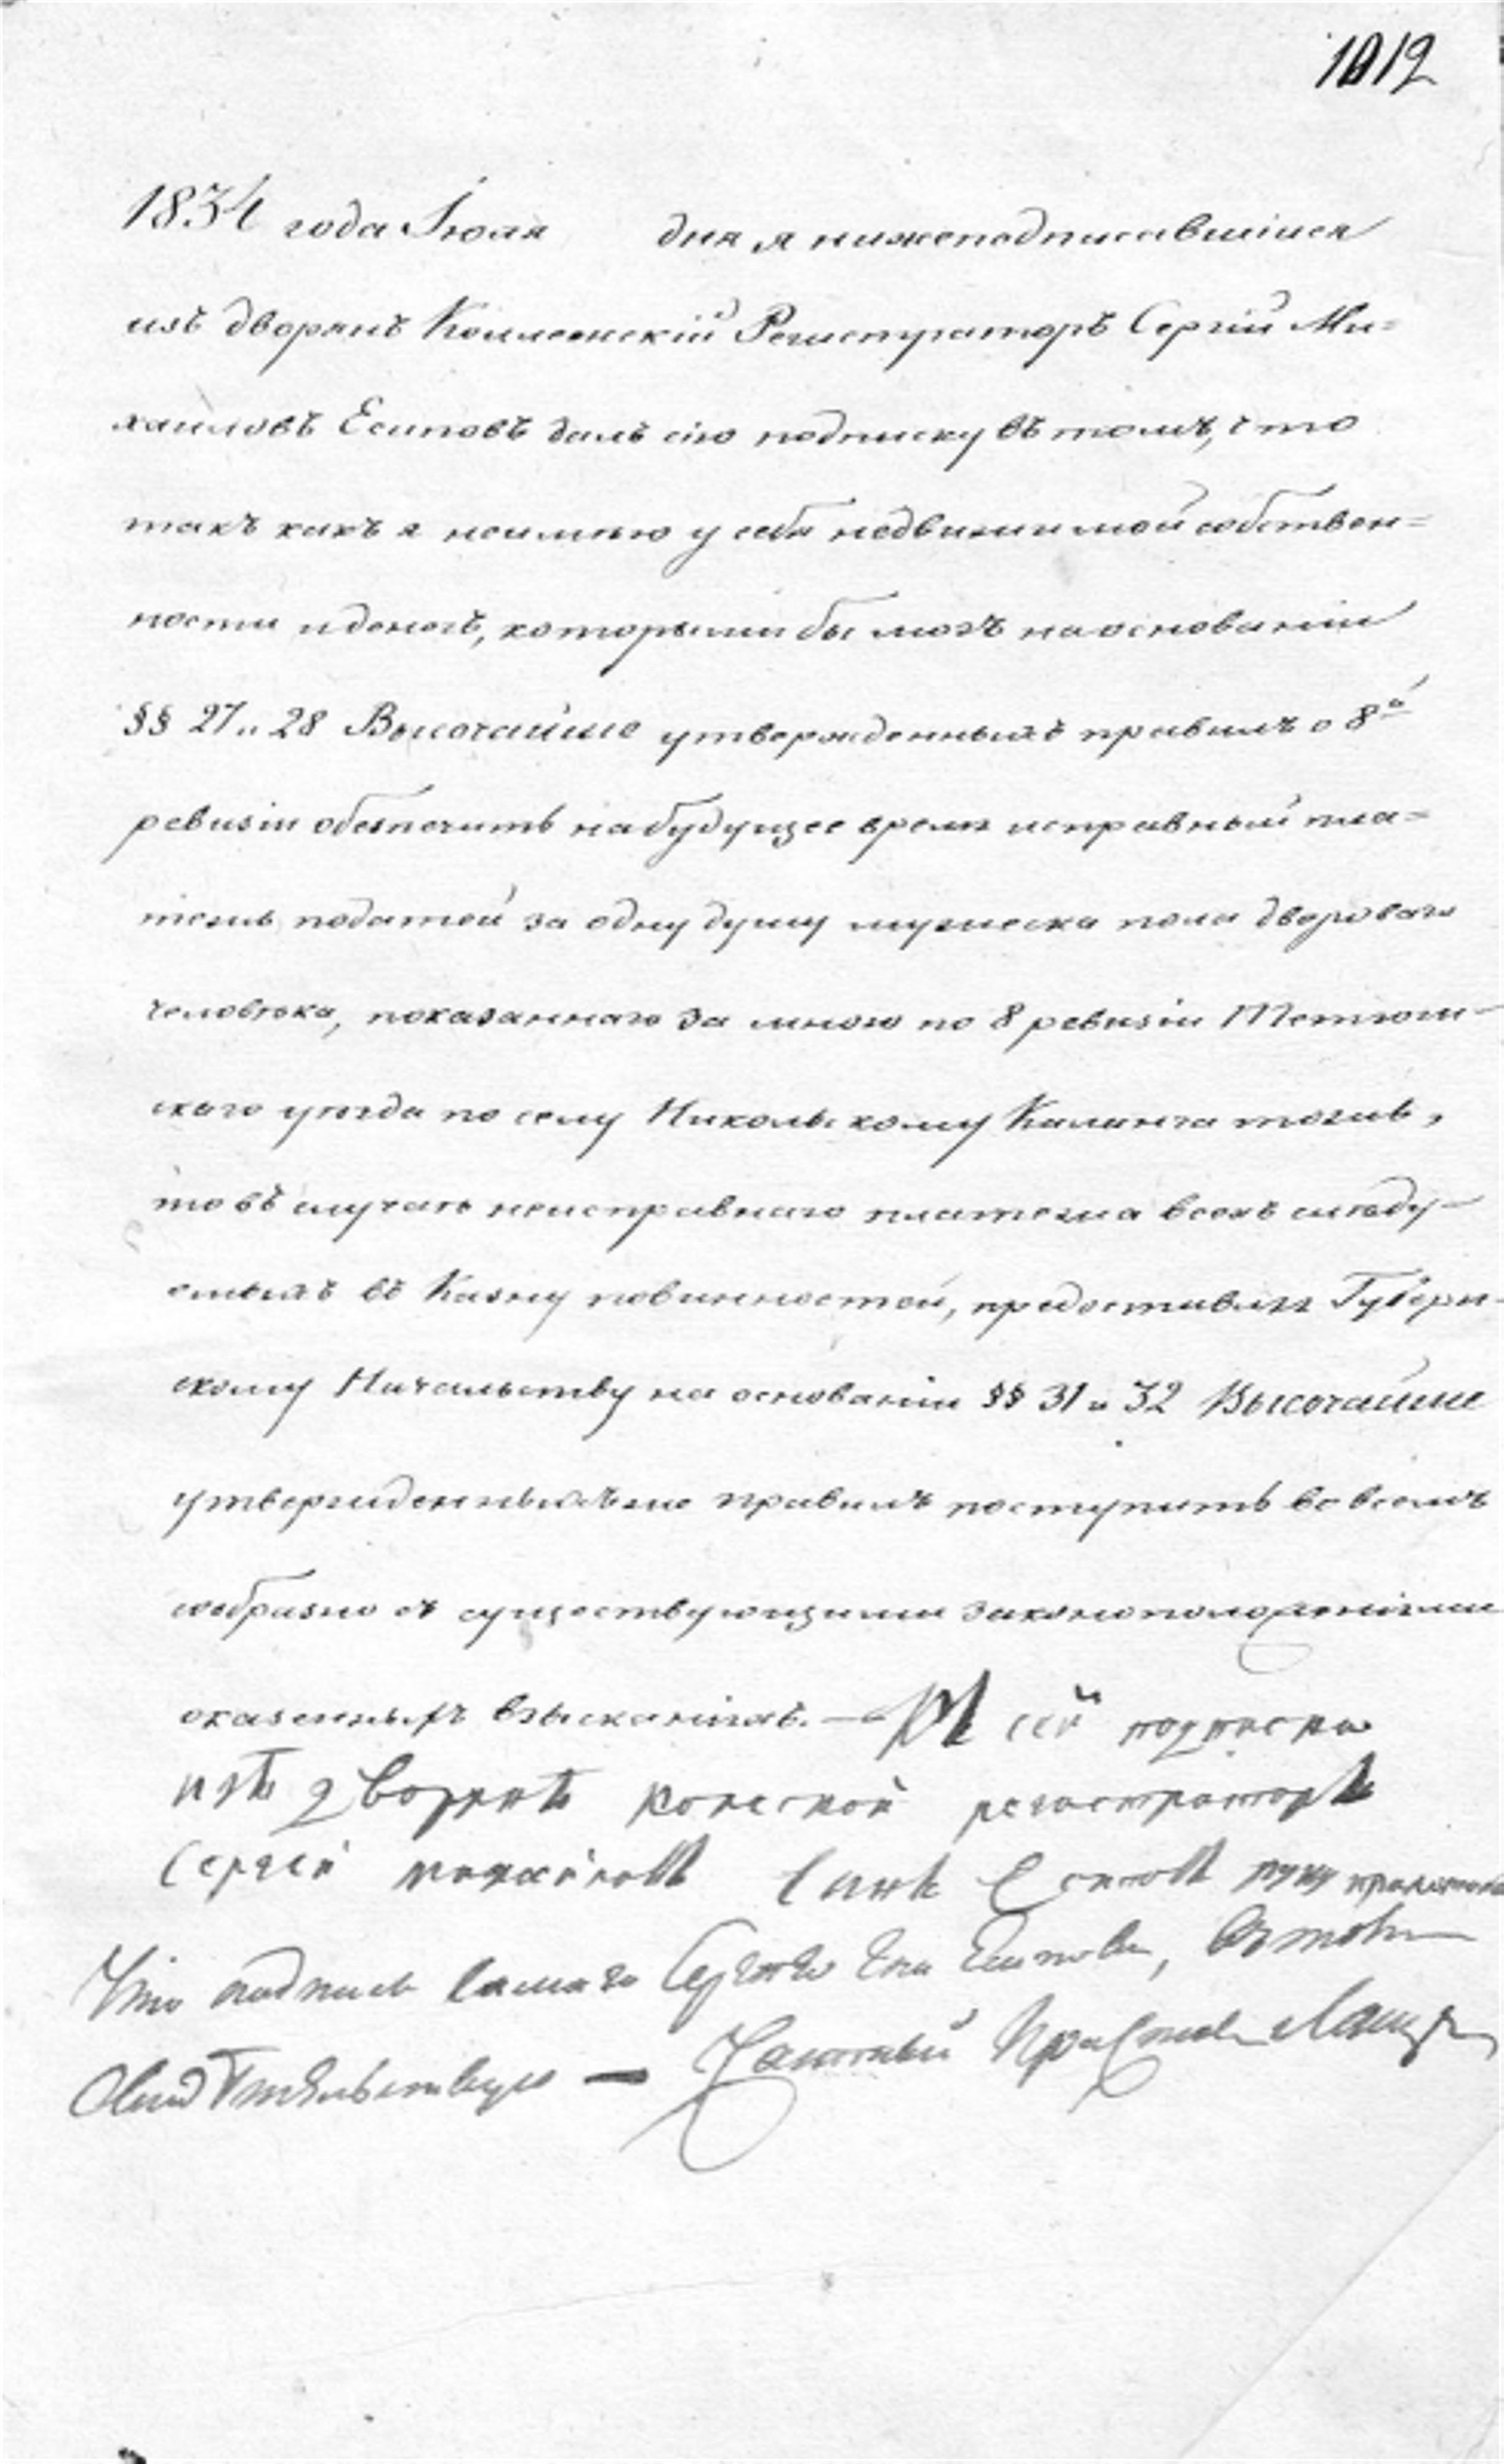 1012
1834 года Іюля дня я нижеподписавшійся
изъ дворянъ Коллежскій Регистраторъ Сергій Ми=
хаиловъ Есиповъ далъ сію подписку въ томъ, что
такъ какъ я неимѣю у себя недвижимой собствен=
ности и денегъ, которыми бы могъ на основаніи
§§ 27 и 28 Высочайше утвержденныхъ правилъ о 8й
ревизіи обезпечить на будущее время исправный пла=
тежъ податей за одну душу мужеска пола двороваго
человѣка, показаннаго за мною по 8 ревизіи Тетюш-
скаго уѣзда по селу Никольскому
то въ случаѣ неисправнаго платежа всехъ слѣду-
емыхъ въ Казну повинностей, предоставляя Губерн-
скому Начальству на основаніи §§ 31 и 32 Высочайше
утвержденныхъ правилъ поступить во всемъ
сообразно съ существующими законоположеніями
о казенныхъ взысканіяхъ. — Къ сей подписки
изъ дворянъ колеской регистраторъ
Сергей михайловъ сынъ Есиповъ руку приложилъ
Что подпись самаго Есипова, въ томъ
Свидѣтельствую — Частный Приставъ